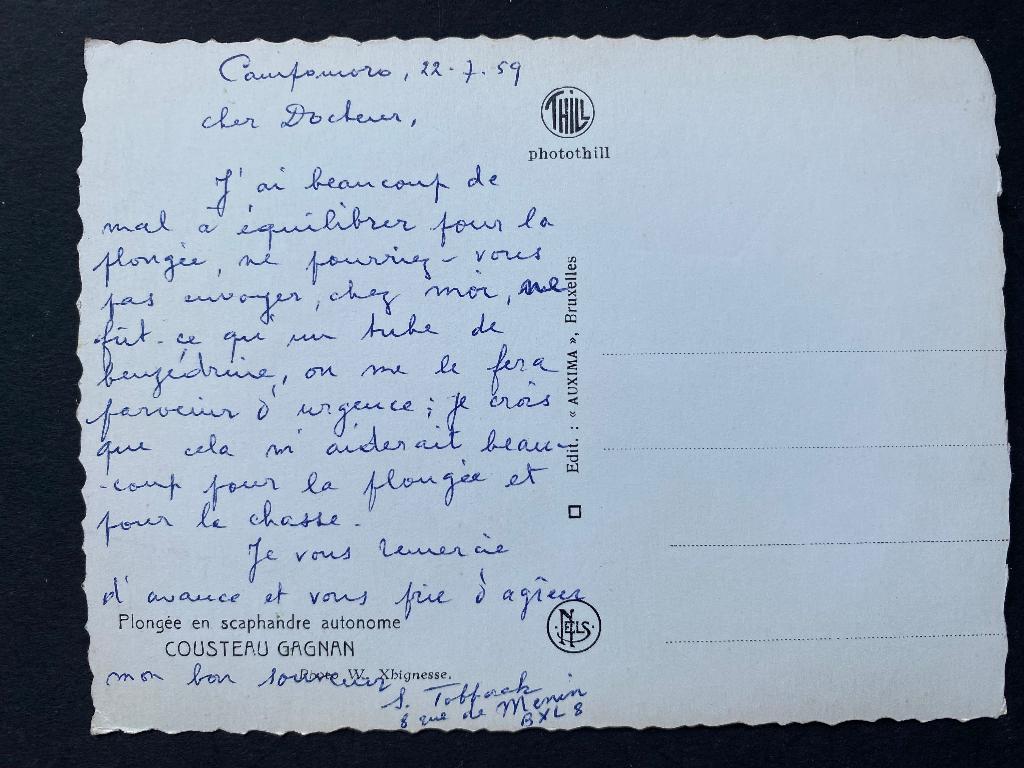 Campomoro, 22-7-59
cher Docteur,
J'ai beaucoup de
mal à équilibrer pour la
plongée, ne pourriez-vous
pas envoyer, chez moi, ne
fût-ce qu'un tube de
benzédrine, on me le fera
parvenir d'urgence; je crois
que cela m'aiderait beau-
-coup pour la plongée et
pour la chasse.
Je vous remercie
d'avance et vous prie d'agréer
mon bon souvenir
S.
8 rue de Menin
BXL 8
Plongée en scaphandre autonome
COUSTEAU GAGNAN
Photo W. Xhignesse.
THILL
photothill
Edit. : « AUXIMA », Bruxelles
NELS